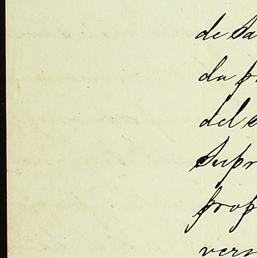 de Sa
da p
del
Supr
prop
vers